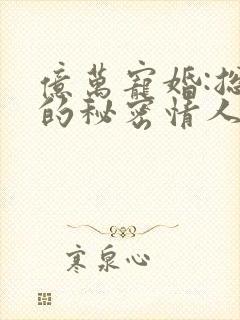 億萬寵婚:
的秘密情人
寒泉心